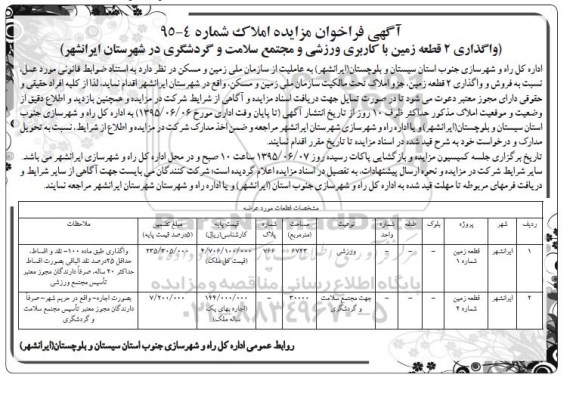 آگهی فراخوان مزایده املاک شماره ۴-۹۵
(واگذاری ۲ قطعه زمین با کاربری ورزشی و مجتمع سلامت و گردشگری در شهرستان ایرانشهر)
اداره کل راه و شهرسازی جنوب استان سیستان و بلوچستان(ایرانشهر) به عاملیت از سازمان ملی زمین و مسکن در نظر دارد به استناد ضوابط قانونی مورد عمل،
نسبت به فروش و واگذاری ۲ قطعه زمین، جزو املاک تحت مالکیت سازمان ملی زمین و مسکن، واقع در شهرستان ایرانشهر اقدام نماید. لذا از کلیه افراد حقیقی و
حقوقی دارای مجوز معتبر دعوت می شود تا در صورت تمایل جهت دریافت اسناد مزایده و آگاهی از شرایط شرکت در مزایده و همچنین بازدید و اطلاع دقیق از
وضعیت و موقعیت املاک مذکور حداکثر ظرف ۱۰ روز از تاریخ انتشار آگهی (تا پایان وقت اداری مورخ ۱۳۹۵/۰۶/۰۶) به اداره کل راه و شهرسازی جنوب
استان سیستان و بلوچستان(ایرانشهر) و یا اداره راه و شهرسازی شهرستان ایرانشهر مراجعه و ضمن اخذ مدارک شرکت در مزایده و اطلاع از شرایط، نسبت به تحویل
مدارک و درخواست خود به شرح قید شده در اسناد مزایده تا تاریخ مقرر اقدام نمایند.
تاریخ برگزاری جلسه کمیسیون مزایده و بازگشایی پاکات رسیده روز ۱۳۹۵/۰۶/۰۷ ساعت ۱۰ صبح و در محل اداره کل راه و شهرسازی ایرانشهر می باشد.
سایر شرایط شرکت در مزایده و نحوه ارسال پیشنهادات، به تفصیل در اسناد مزایده اعلام گردیده است؛ شرکت کنندگان می بایست جهت آگاهی از سایر شرایط و
دریافت فرمهای مربوطه تا مهلت قید شده به اداره کل راه و شهرسازی جنوب استان (ایرانشهر) و یا اداره راه و شهرسازی شهرستان ایرانشهر مراجعه نمایند.
مشخصات قطعات مورد عرضه
ردیف شهر پروژه بلوک طبقه شماره واحد نوعیت مساحت (مترمربع) شماره پلاک قیمت پایه کارشناسی(ریال) مبلغ تضمین (۵درصد قیمت پایه) ملاحظات
۱ ایرانشهر قطعه زمین شماره ۱ - - - ورزشی ۶۷۲۳ ۷۶۶ ۴/۷۰۶/۱۰۰/۰۰۰ (قیمت کل ملک) ۲۳۵/۳۰۵/۰۰۰ واگذاری طبق ماده ۱۰۰- نقد و اقساط، حداقل ۲۵درصد نقد الباقی بصورت اقساط حداکثر ۲۰ ساله، صرفاً دارندگان مجوز معتبر تأسیس مجتمع ورزشی
۲ ایرانشهر قطعه زمین شماره ۲ - - - جهت مجتمع سلامت و گردشگری ۳۰۰۰۰ - ۱۴۴/۰۰۰/۰۰۰ (اجاره بهای یک ساله ملک) ۷/۲۰۰/۰۰۰ بصورت اجاره- واقع در حریم شهر- صرفاً دارندگان مجوز معتبر تأسیس مجتمع سلامت و گردشگری
روابط عمومی اداره کل راه و شهرسازی جنوب استان سیستان و بلوچستان(ایرانشهر)